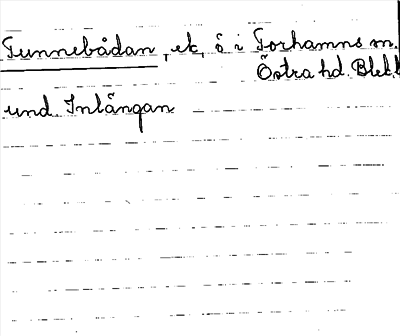 Tunnebådan, ek, ö i Torhamns sn.
Östra hd. Blek.
und. Inlängan